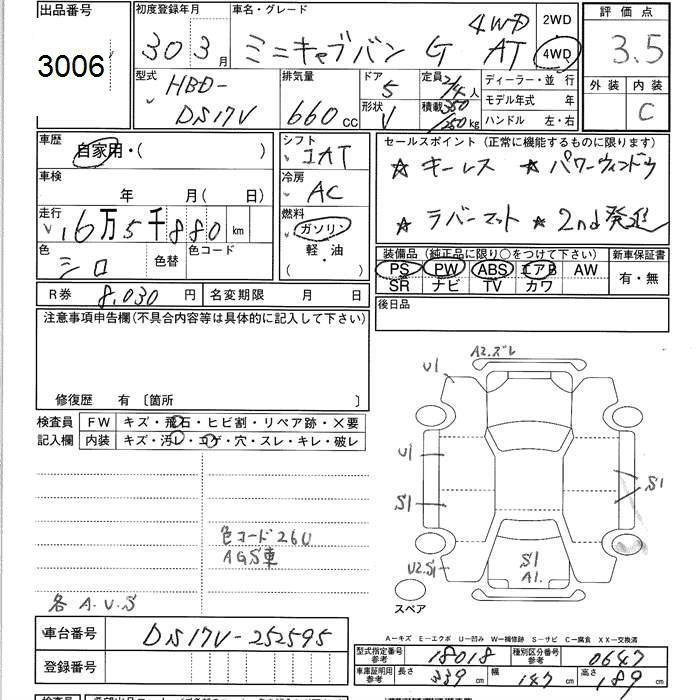 出品番号 初度登録年月 車名・グレード 評価点
3006 30 3月 ミニキャブバン G 4WD AT 2WD 4WD 3.5
型式 HBD-DS17V 排気量 660cc ドア 5 形状 V 定員 2/4人 積載 350/250kg
ディーラー・並 行
モデル年式 年
ハンドル 左・右
外装 内装 C
車歴 自家用・( )
シフト コAT
セールスポイント (正常に機能するものに限ります)
☆ キーレス ☆ パワーウィンドウ
☆ ラバーマット ☆ 2nd発進
車検 年 月( 日)
冷房 AC
走行 1.6万5千880km
燃料 ガソリン 軽・油 ( )
色 シロ 色替 色コード
装備品 (純正品に限り○をつけて下さい) 新車保証書
PS PW ABS エアB AW 有・無
SR ナビ TV カワ
R券 8,030円 名変期限 月 日
後日品
注意事項申告欄(不具合内容等は具体的に記入して下さい)
修復歴 有 〔箇所 〕
検査員 記入欄
FW キズ・飛石・ヒビ割・リペア跡・×要
内装 キズ・汚レ・コゲ・穴・スレ・キレ・破レ
色コード26U
AGS車
各 A.U.S
A2.ズレ
U1
U1
S1
S1
U2.S1
S1
A1.
スペア
A-キズ E-エクボ U-凹み W-補修跡 S-サビ C-腐食 XX-交換済
車台番号 DS17V-252595
登録番号
型式指定番号 参考 18018 種別区分番号 参考 0647
車庫証明用 参考 長さ 339cm 幅 147cm 高さ 189cm